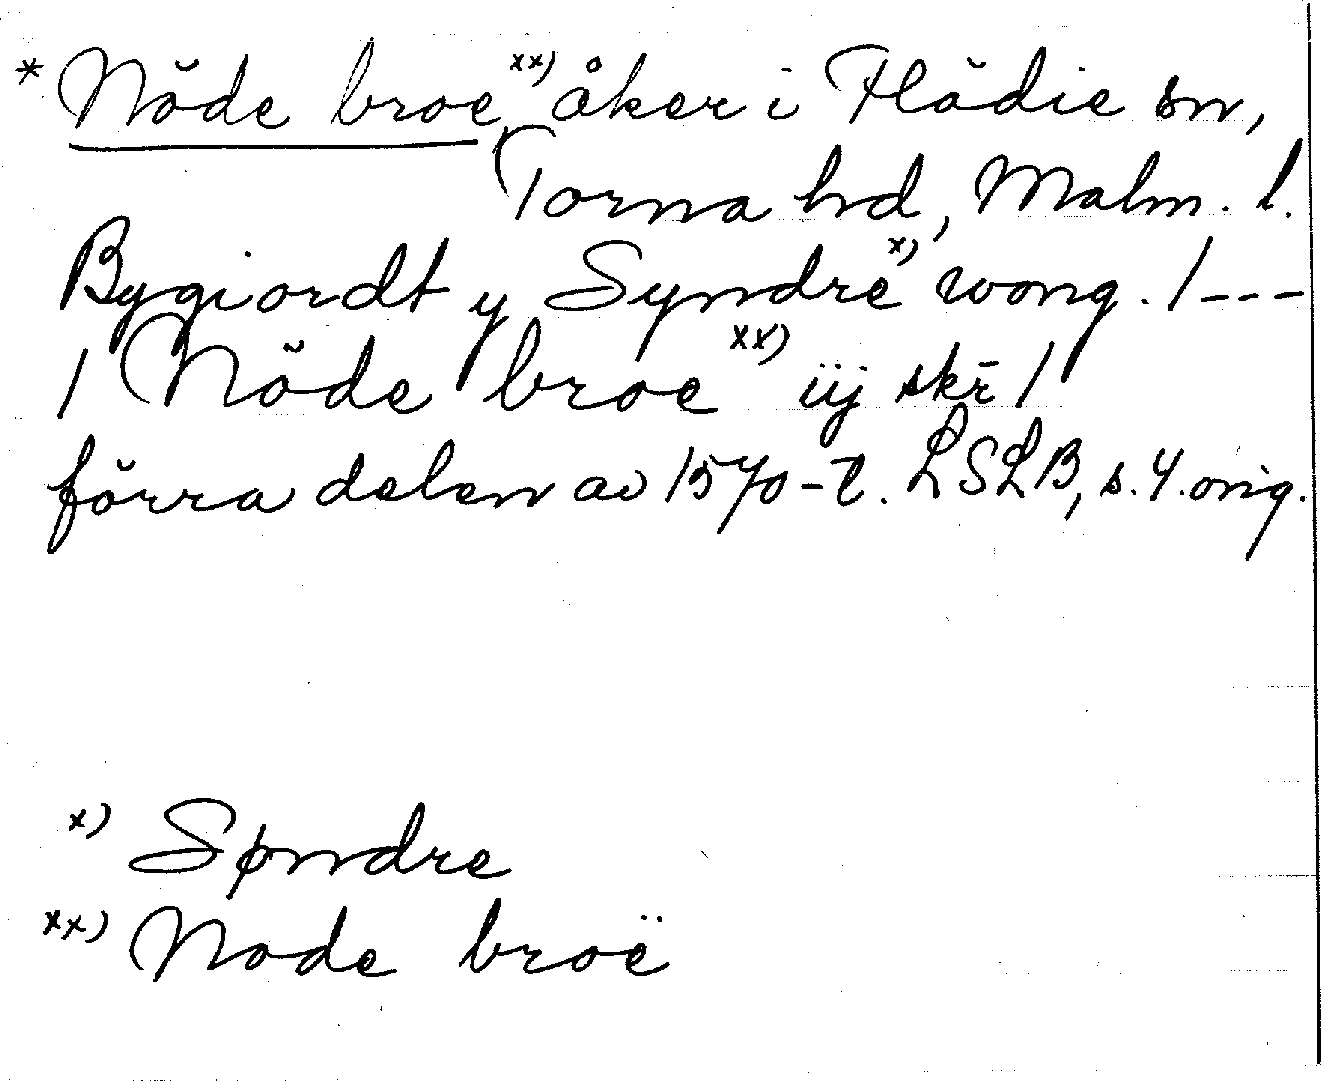 * Nöde broe, xx) åker i Flädie sn,
Torna hd, Malm. l.
Bygiordt y Syndre x) wong. / ---
/ Nöde broe xx) iij skr̄ /
förra delen av 1570-t. LSLB, s. 4. orig.
x) Spndre
xx) Node broë